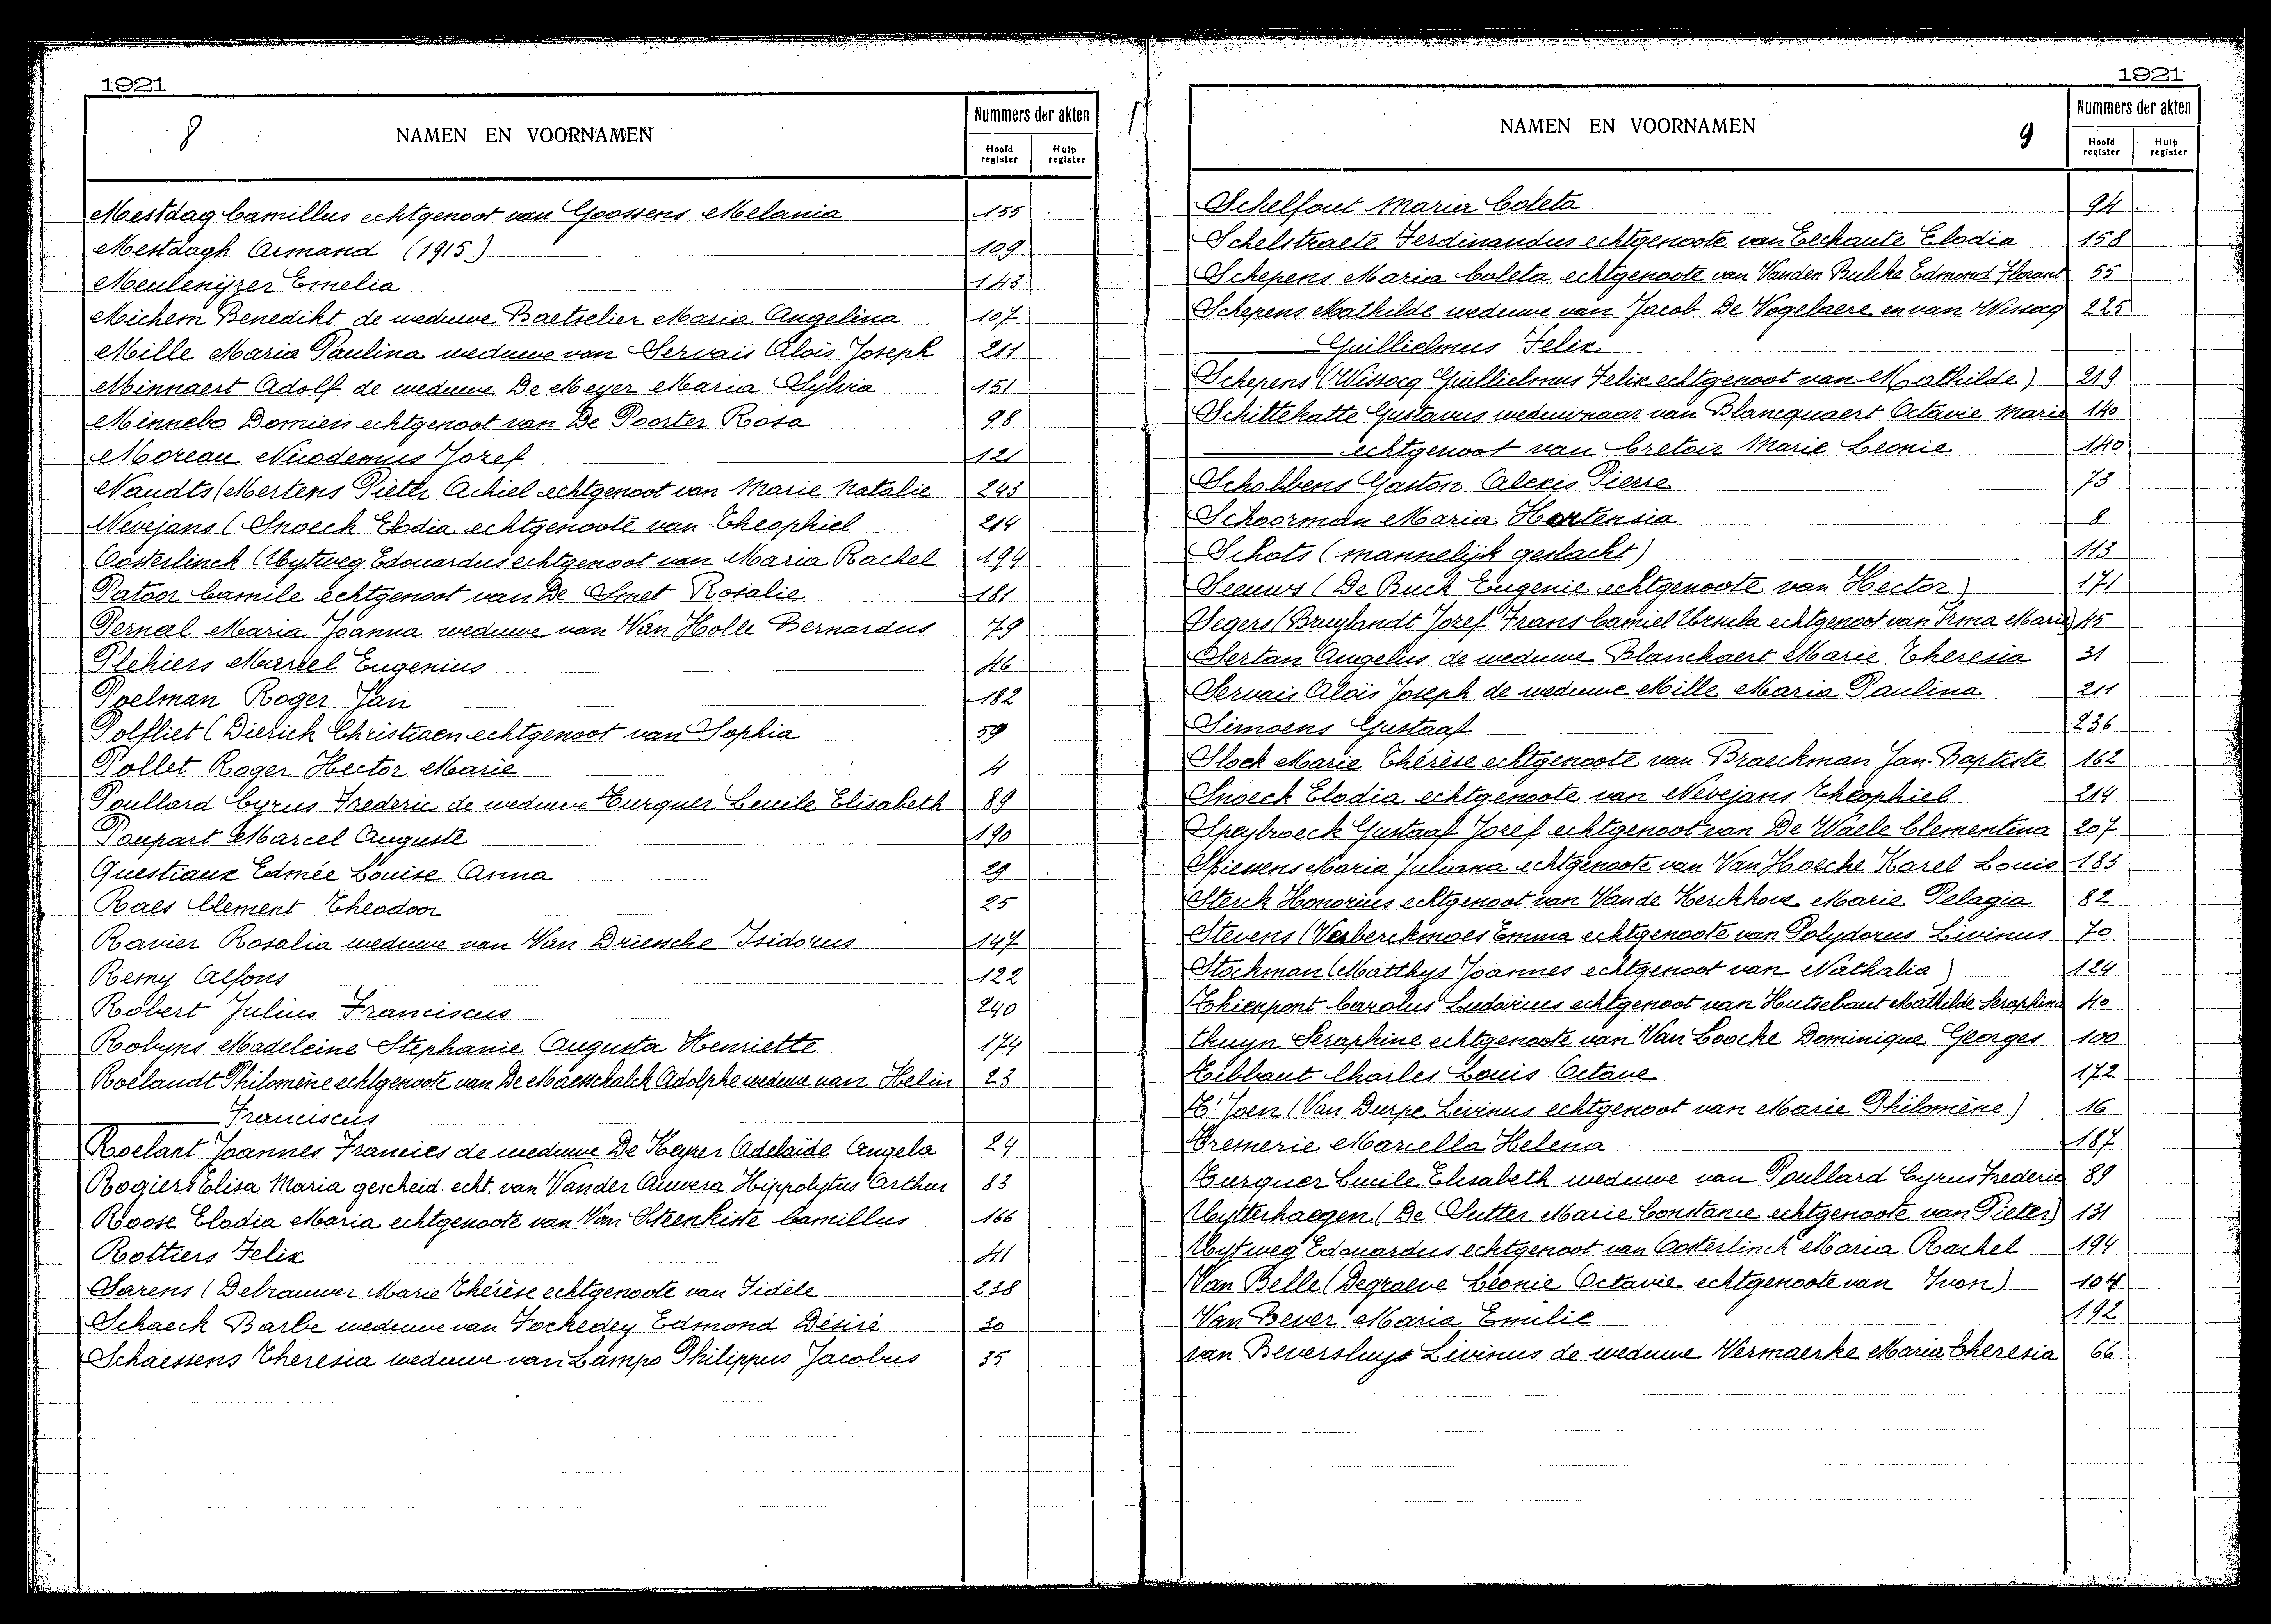 1921
8
NAMEN EN VOORNAMEN
Nummers der akten
Hoofd register
Hulp register
Mestdag Camillus echtgenoot van Goossens Melania 155
Mestdagh Armand (1915) 109
Meulenijzer Emelia 143
Michem Benedikt de weduwe Baetselier Maria Angelina 107
Mille Maria Paulina weduwe van Servais Aloïs Joseph 211
Minnaert Adolf de weduwe De Meyer Maria Sylvia 151
Minnebo Domien echtgenoot van De Poorter Rosa 98
Moreau Nicodemus Jozef 121
Naudts (Mertens Pieter Achiel echtgenoot van Marie Natalie 243
Nevejans (Snoeck Elodia echtgenoote van Theophiel 214
Oosterlinck (Uytweg Edouardus echtgenoot van Maria Rachel 194
Patoor Camile echtgenoot van De Smet Rosalie 181
Perneel Maria Joanna weduwe van Van Holle Bernardus 79
Plehiers Marcel Eugenius 46
Poelman Roger Jan 182
Polfliet (Dierick Christiaen echtgenoot van Sophia 59
Pollet Roger Hector Marie 4
Poullard Cyrus Frederic de weduwe Turquer Lucile Elisabeth 89
Poupart Marcel Auguste 190
Questiaux Edmée Louise Anna 29
Raes Clement Theodoor 25
Ravier Rosalia weduwe van Van Driessche Isidorus 147
Remy Alfons 122
Robert Julius Franciscus 240
Robyns Madeleine Stephanie Augusta Henriette 174
Roelandt Philomène echtgenoote van De Maesschalck Adolphe weduwe van Helin 23
Franciscus
Roelant Joannes Francies de weduwe De Keyzer Adelaïde Angela 24
Rogiers Elisa Maria gescheid. echt. van Vander Auwera Hippolytus Arthur 83
Roose Elodia Maria echtgenoote van Van Steenkiste Camillus 166
Rottiers Felix 41
Sarens (Debrauwer Marie Thérèse echtgenoote van Fidèle 238
Schaeck Barbe weduwe van Fockedey Edmond Désiré 30
Schaessens Theresia weduwe van Lampo Philippus Jacobus 35
1921
NAMEN EN VOORNAMEN
9
Nummers der akten
Hoofd register
Hulp. register
Schelfout Maria Coleta 94
Schelstraete Ferdinandus echtgenoote van Eechaute Elodia 158
Schepens Maria Coleta echtgenoote van Vanden Bulcke Edmond Florant 55
Schepens Mathilde weduwe van Jacob De Vogelaere en van Wissocq 225
Guillielmus Felix
Schepens (Wissocq Guillielmus Felix echtgenoot van Mathilde) 219
Schittekatte Gustavus weduwnaar van Blancquaert Octavie Marie 140
echtgenoot van Cretoir Marie Leonie 140
Scholbens Gaston Alexis Pierre 73
Schoorman Maria Hortensia 8
Schots (mannelijk geslacht) 113
Seeuws (De Buck Eugenie echtgenoote van Hector) 171
Segers (Bruylandt Jozef Frans Camiel Ursula echtgenoot van Irma Marie) 15
Sertan Angelus de weduwe Blanchaert Marie Theresia 31
Servais Aloïs Joseph de weduwe Mille Maria Paulina 211
Simoens Gustaaf 236
Slock Marie Thérèse echtgenoote van Braeckman Jan-Baptiste 162
Snoeck Elodia echtgenoote van Nevejans Theophiel 214
Speybroeck Gustaaf Jozef echtgenoot van De Waele Clementina 207
Spiessens Maria Juliana echtgenoote van Van Hoecke Karel Louis 183
Sterck Honorius echtgenoot van Vande Kerckhove Marie Pelagia 82
Stevens (Verberckmoes Emma echtgenoote van Polydorus Livinus 70
Stockman (Matthys Joannes echtgenoot van Nathalia) 124
Thienpont Carolus Ludovicus echtgenoot van Hutsebaut Mathilde Seraphina 40
Thuyn Seraphine echtgenoote van Van Loocke Dominique Georges 100
Tibbaut Charles Louis Octave 172
T'Joen (Van Durpe Livinus echtgenoot van Marie Philomène) 16
Tremerie Marcella Helena 187
Turquer Lucile Elisabeth weduwe van Poullard Cyrus Frederic 89
Uytterhaegen (De Sutter Marie Constance echtgenoote van Pieter) 131
Uytweg Edouardus echtgenoot van Oosterlinck Maria Rachel 194
Van Belle (Degraeve Leonie Octavie echtgenoote van Ivon) 104
Van Bever Maria Emilie 192
van Beversluys Livinus de weduwe Vermaerke Maria Theresia 66